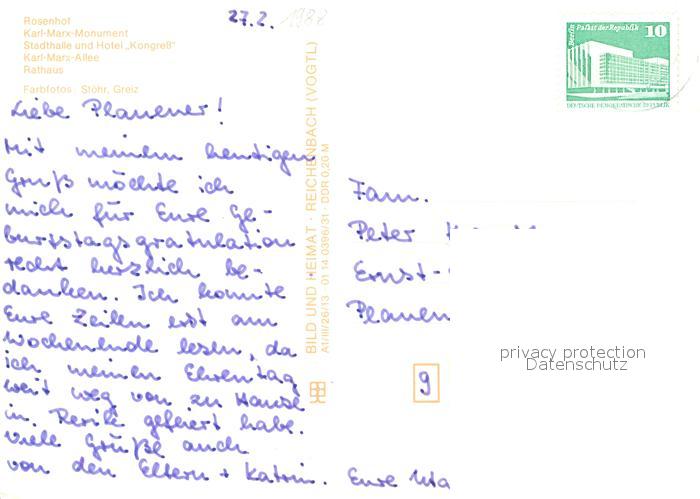 27.2. 1988
Rosenhof
Karl-Marx-Monument
Stadthalle und Hotel „Kongreß"
Karl-Marx-Allee
Rathaus
Farbfotos: Stöhr, Greiz
Liebe Plauener!
Mit meinem heutigen
Gruß möchte ich
mich für Eure Ge-
burtstagsgratulation
recht herzlich be-
danken. Ich konnte
Eure Zeilen erst am
Wochenende lesen, da
ich meinen Ehrentag
weit weg von zu Hause
in gefeiert habe.
Viele Grüße auch
von den Eltern + Katrin. Eure Uta
BILD UND HEIMAT · REICHENBACH (VOGTL)
A1/III/26/13 · 01 14 0396/31 · DDR 0,20 M
Berlin Palast der Republik 10
DEUTSCHE DEMOKRATISCHE REPUBLIK
Fam.
Peter
Ernst-
Plauen
9
privacy protection
Datenschutz